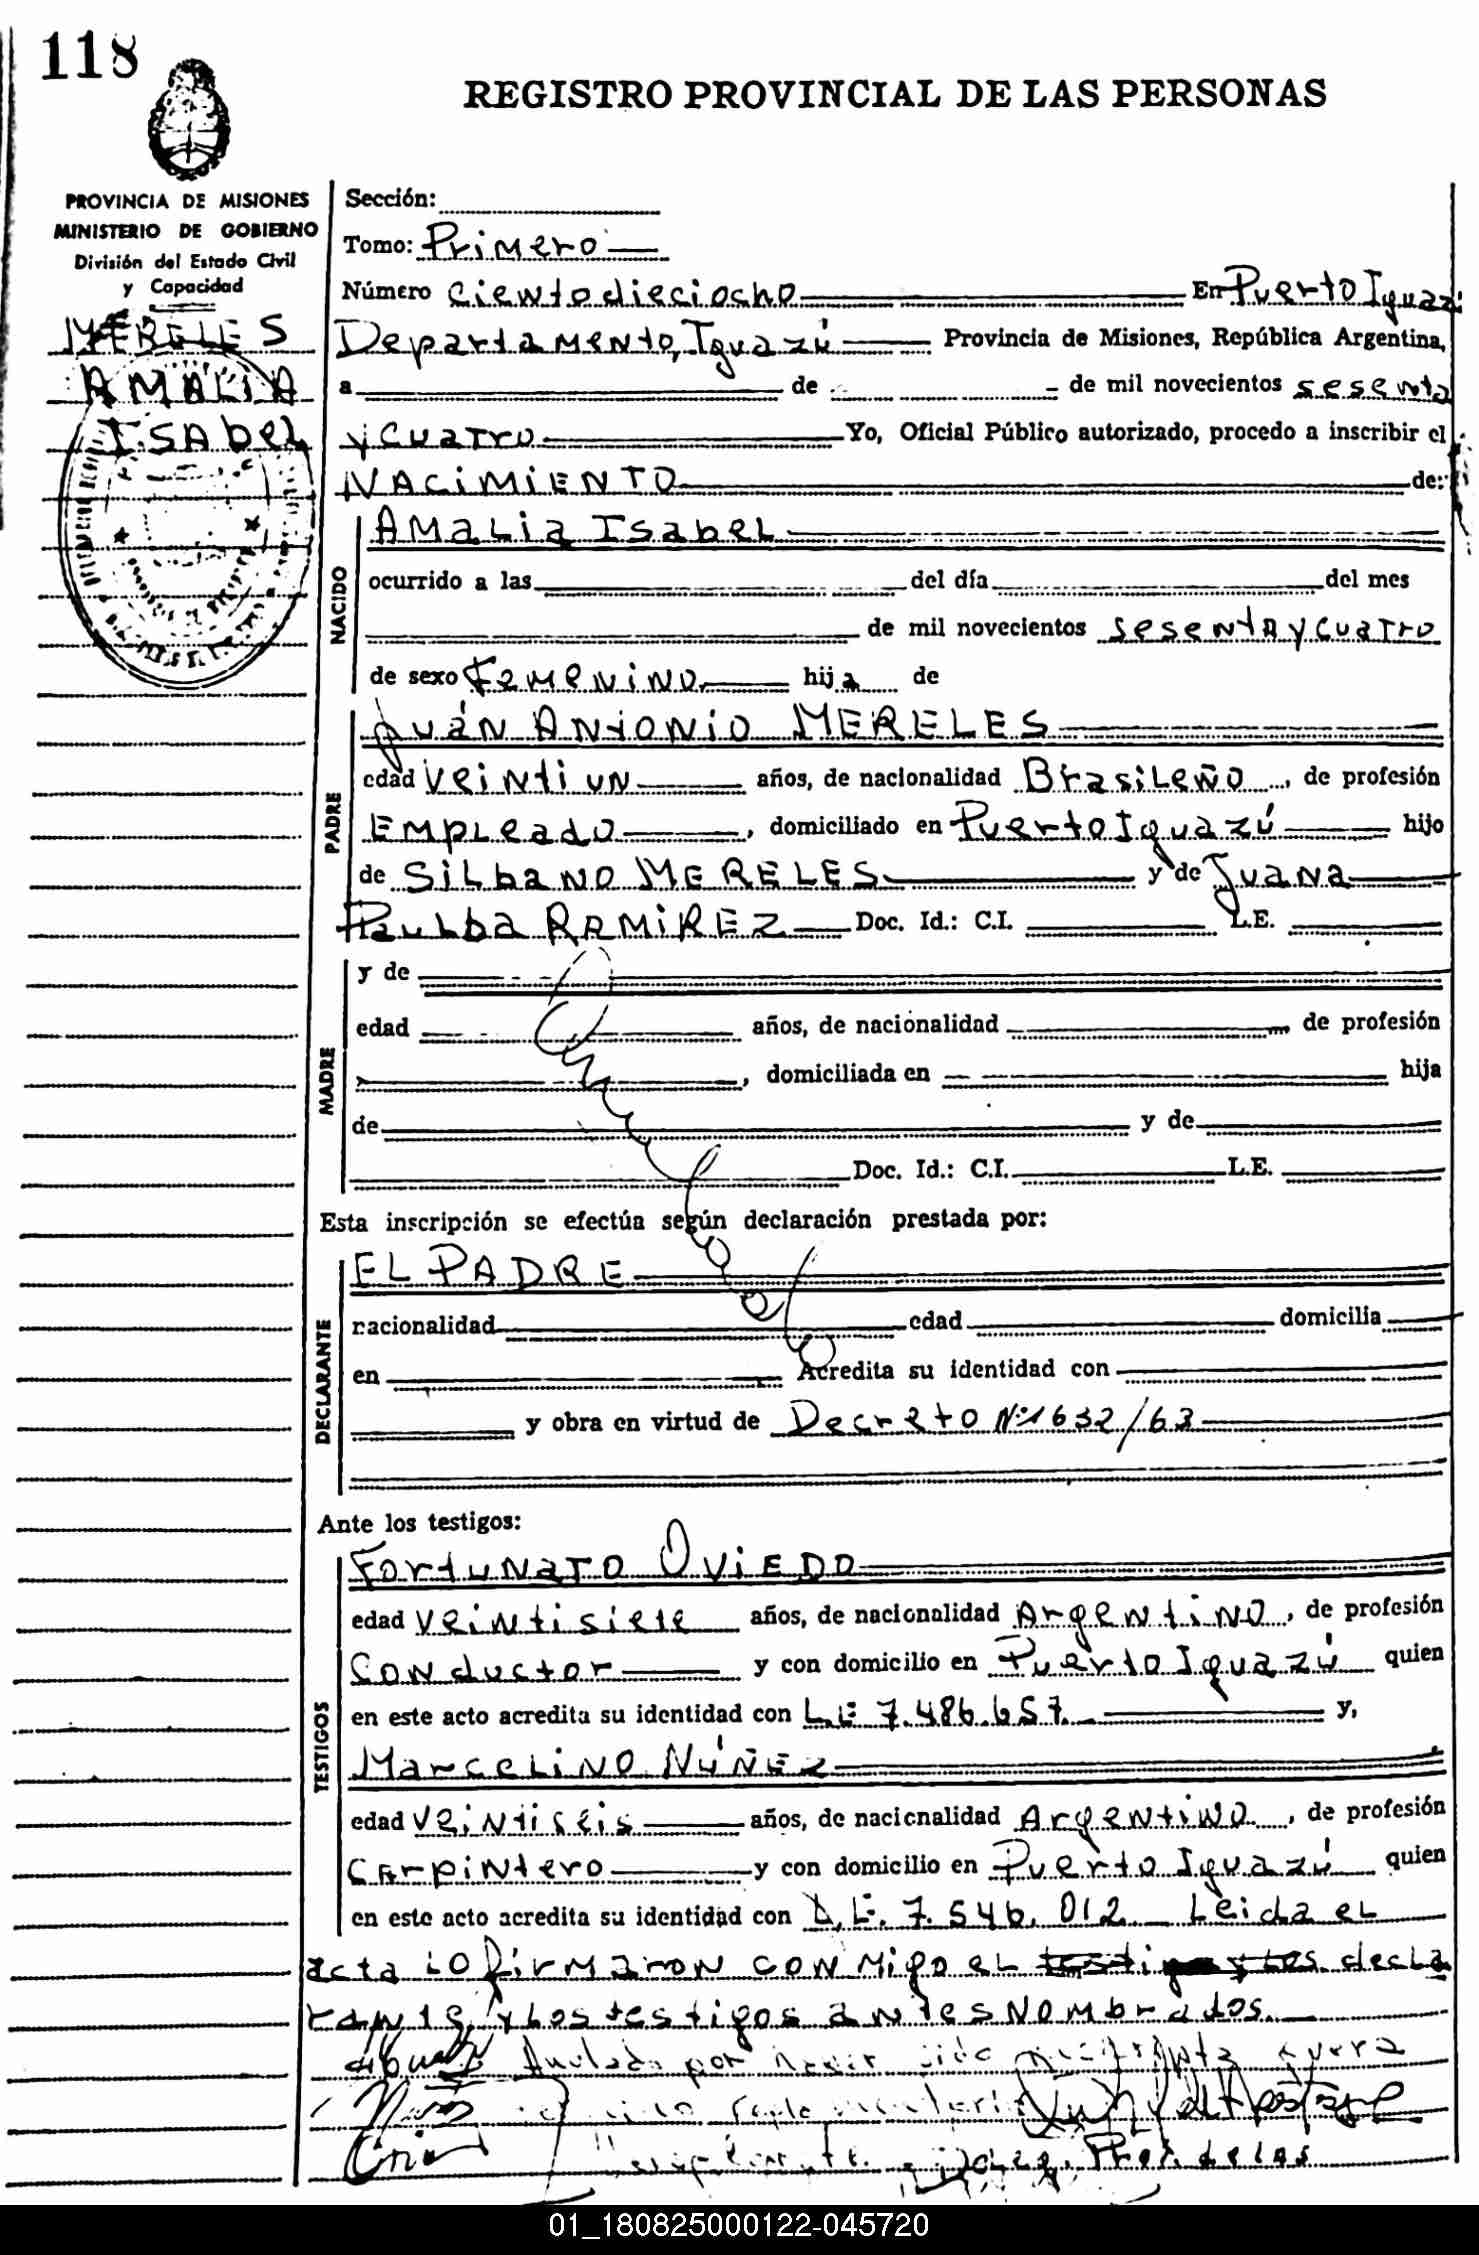 118
REGISTRO PROVINCIAL DE LAS PERSONAS
PROVINCIA DE MISIONES
MINISTERIO DE GOBIERNO
División del Estado Civil
y Capacidad
MERELES
AMALIA
ISAbEL
Sección:
Tomo: Primero
Número cientodieciocho En Puerto Iguazú
Departamento, Iguazú Provincia de Misiones, República Argentina,
a de de mil novecientos sesenta
y cuatro Yo, Oficial Público autorizado, procedo a inscribir el
NACIMIENTO de:
NACIDO
AMALIA ISABEL
ocurrido a las del día del mes
de mil novecientos sesenta y cuatro
de sexo Femenino hija de
PADRE
Juán ANTONIO MERELES
edad Veintiun años, de nacionalidad Brasileño, de profesión
Empleado, domiciliado en Puerto Iguazú hijo
de SILbANO MERELES y de Juana
RAMIREZ Doc. Id.: C.I. L.E.
MADRE
y de
edad años, de nacionalidad de profesión
, domiciliada en hija
de y de
Doc. Id.: C.I. L.E.
Anulado
Esta inscripción se efectúa según declaración prestada por:
DECLARANTE
EL PADRE
nacionalidad edad domicilia
en Acredita su identidad con
y obra en virtud de Decreto Nº 1632/63
Ante los testigos:
TESTIGOS
Fortunato OVIEDO
edad Veintisiete años, de nacionalidad Argentino, de profesión
Conductor y con domicilio en Puerto Iguazú quien
en este acto acredita su identidad con L.E 7.486.657 y,
Marcelino NÚÑEZ
edad Veintiseis años, de nacionalidad Argentino, de profesión
Carpintero y con domicilio en Puerto Iguazú quien
en este acto acredita su identidad con L.E. 7.546.012 Leida el
acta lo firmaron conmigo el testigo y los decla
rante y los testigos antes nombrados.
Anulado por haber sido
01_180825000122-045720